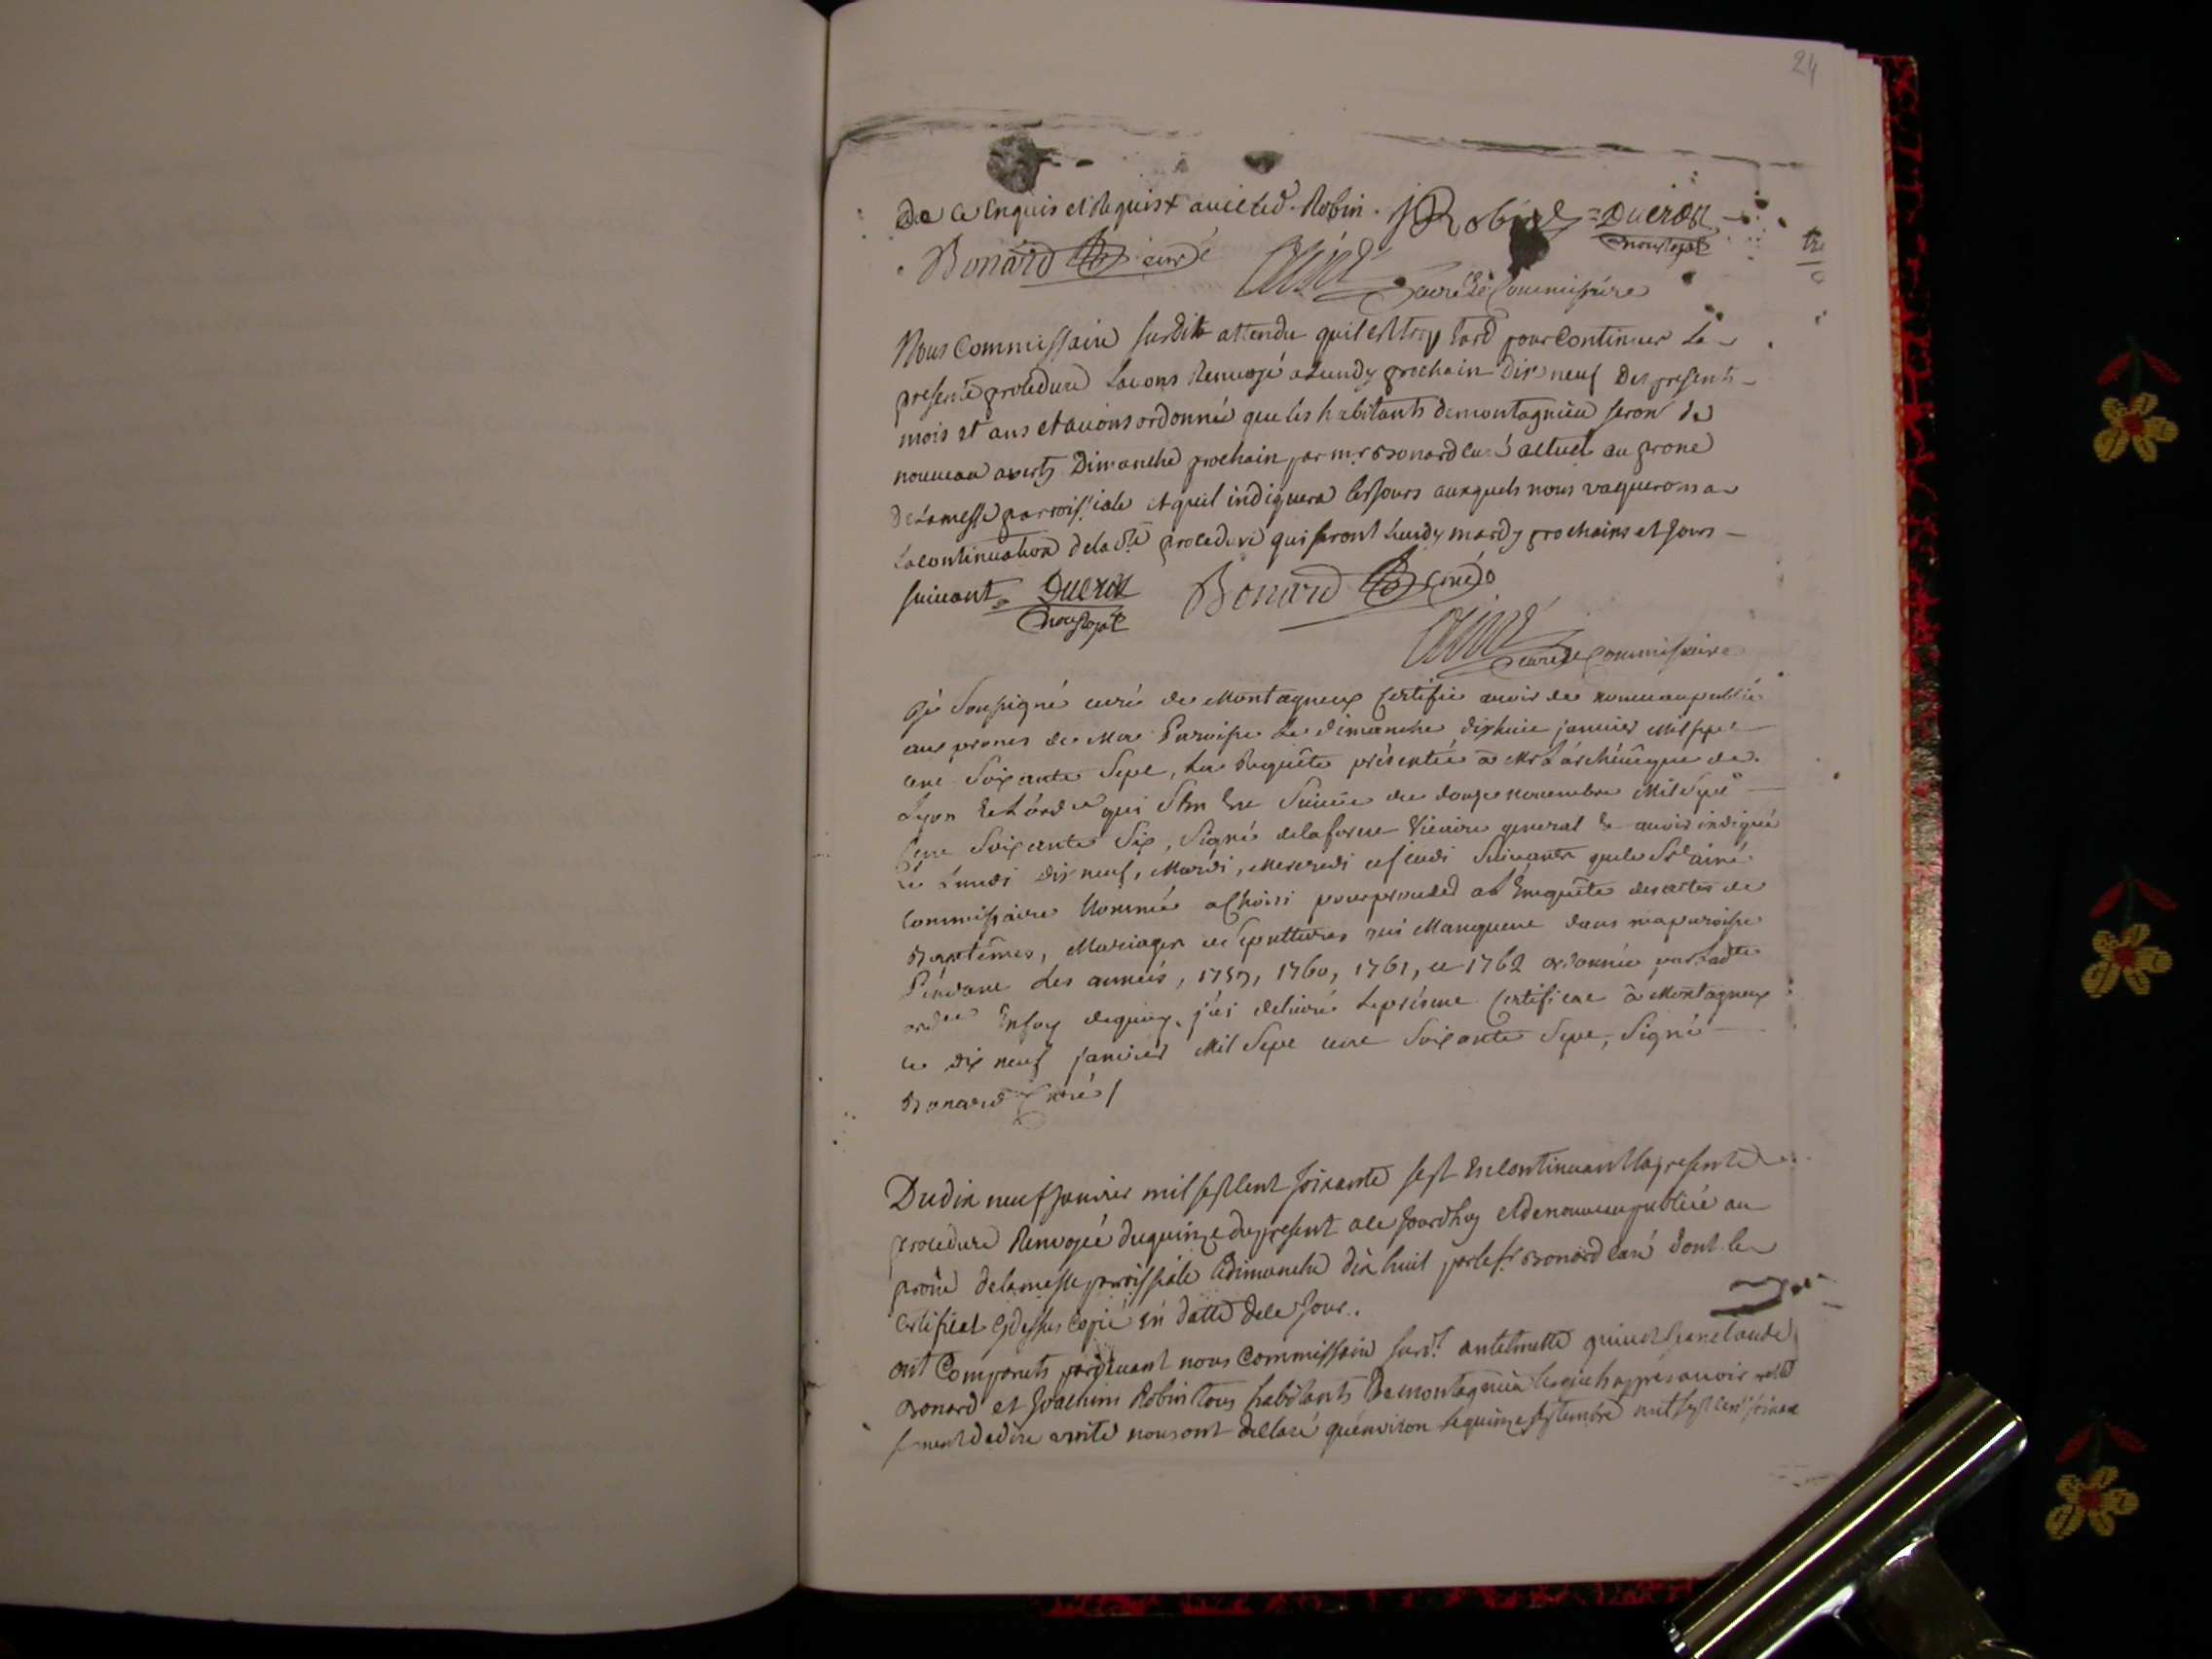 24
De ce Enquis et Requis+ avec led. Robin. J Robin = Dueron
nore royal
Bonard curé Aimé curé et Commissaire
Nous Commissaire susdit attendu quil est trop tard pour Continuer La
presente procedure Lavons Renvoyé a Lundy prochain dix neuf des presents
mois et ans et avons ordonné que les habitants de montagnieu seron de
nouveau averts Dimanche prochain par mr. Bonard curé actuel au prone
de La messe parroissiale et quil indiquera les Jours auxquels nous vaquerons a
La continuation de la de procedure qui seront Lundy mardy prochains et Jours
suivant = Dueron Bonard curé
nore royal
Aimé curé et Commissaire
Je Soussigné curé de Montagneux Certifie avoir de nouveau publié
aux prones de Ma Paroisse Le dimanche dixhuit janvier Mil sept
cent Soixante Sept, La Requête présentée à Mr L'archévêque de
Lyon Et L'ordce qui S'en Est Suivie du douze novembre Mil Sept
Cent Soixante Six, Signé delaforest Vicaire general Et avoir indiqué
Le Lundi dix neuf, Mardi, Mercredi et jeudi Suivants que le Sr aimé
Commissaire Nommé a Choisi pour proceder a L'Enquête des actes de
Baptêmes, Mariages et Sepultures qui Manquent dans ma paroisse
Pendant Les années, 1759, 1760, 1761, et 1762 ordonnée par Ladte
ordce En foy de quoy j'ai delivré Le présent Certificat à Montagneux
ce dix neuf janvier Mil Sept cent Soixante Sept, Signé
Bonard Curé /
Du dix neuf Janvier mil sept Cent soixante sept En Continuant la presente
procedure Renvoyée du quinze du present a ce Jourd'huy et de nouveau publiée au
prône de la messe parroissiale le dimanche dix huit par le sr Bonard curé dont le
Certificat cy dessus Copié En datte de ce Jour.
ont Comparuts pardevant nous Commissaire surdt. antelmette Jean claude
Bonard et Joachim Robin tous habitants de montagnieu lesquels apres avoir presté
serment de dire verité nous ont declaré qu'environ le quinze septembre mil sept cent soixante